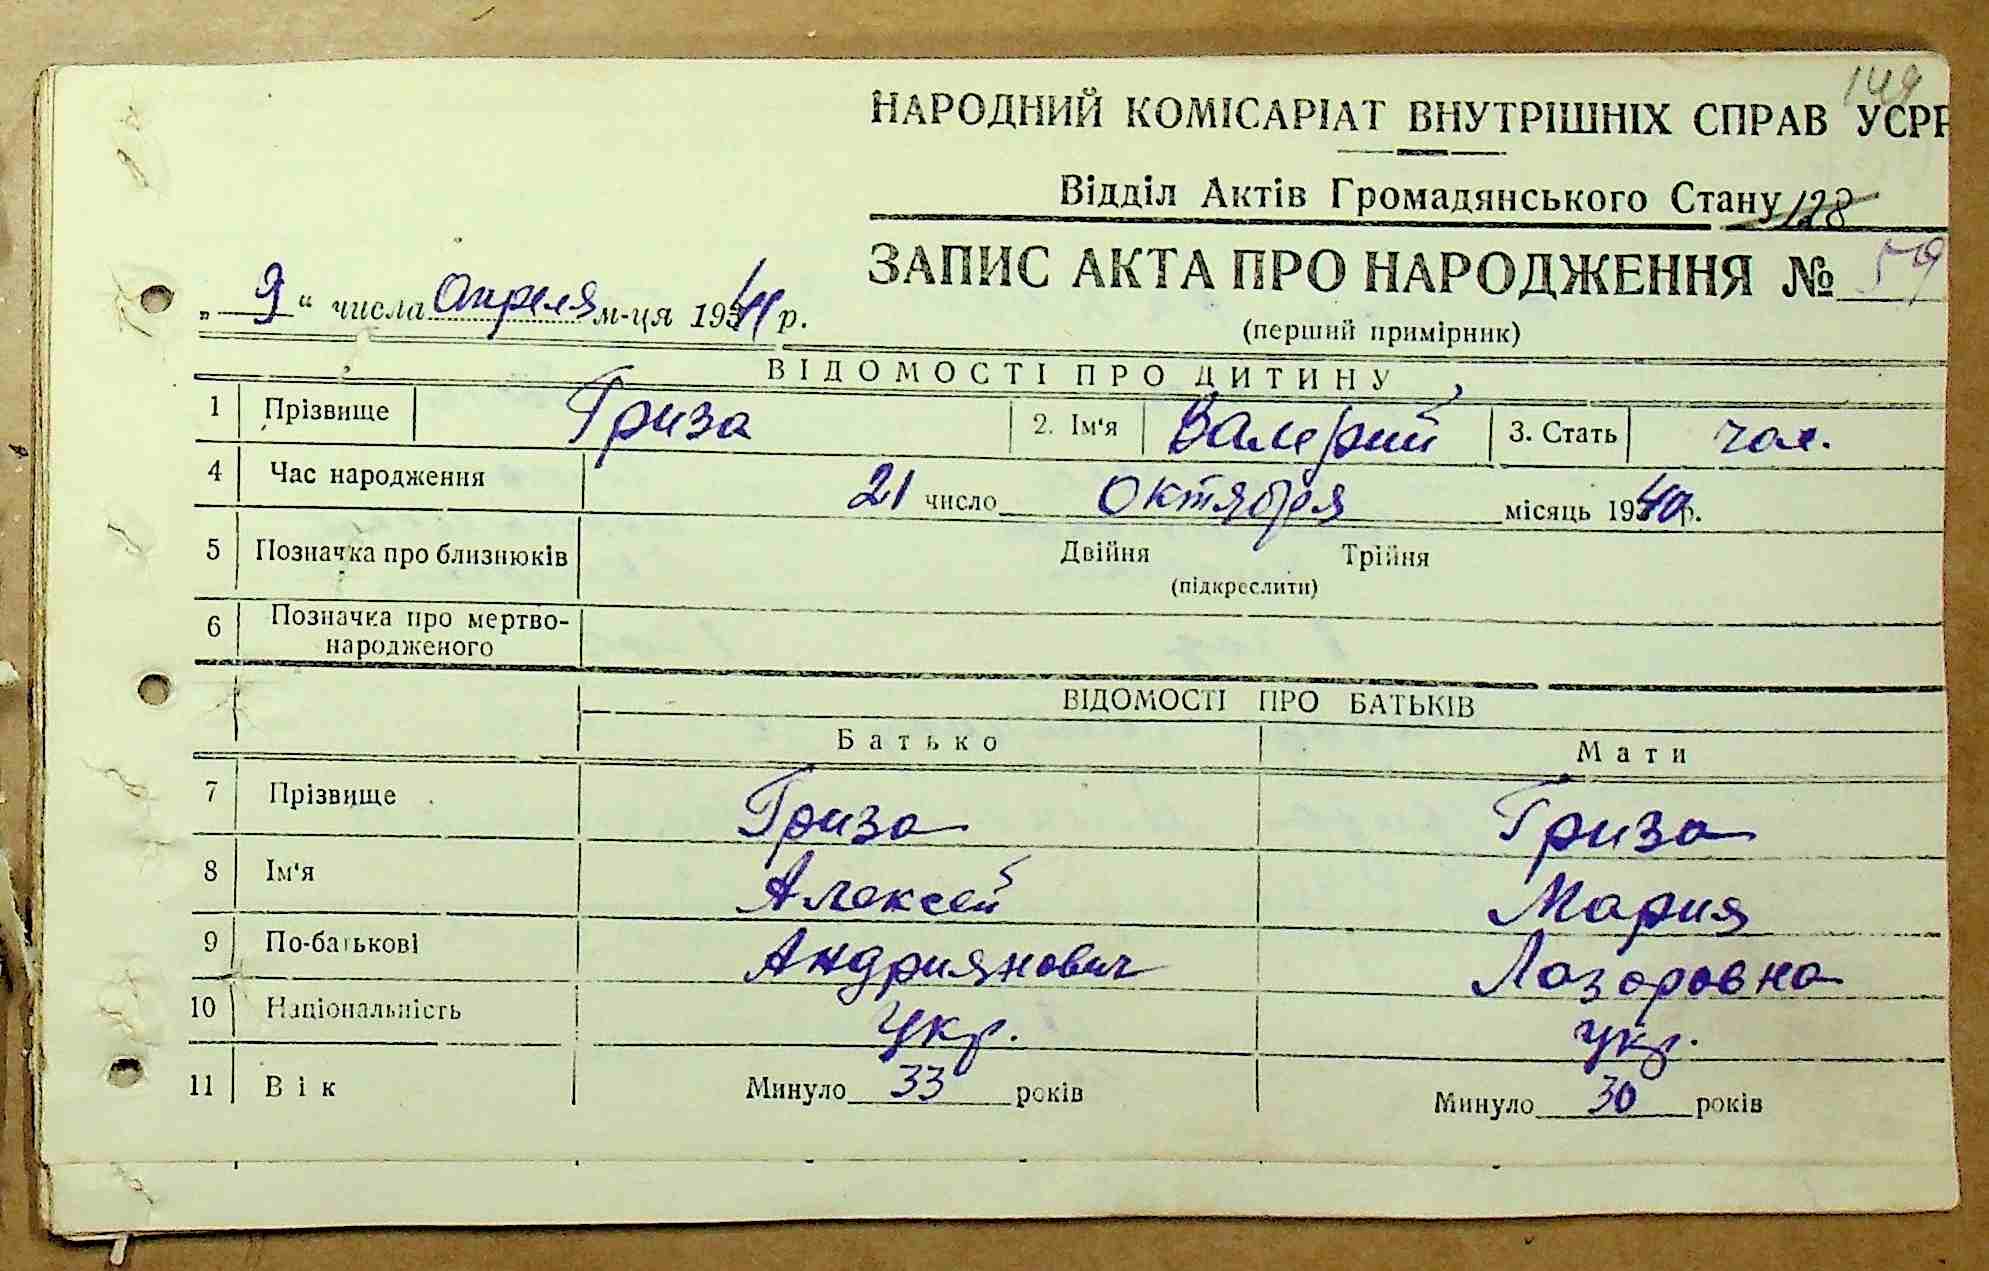 149
НАРОДНИЙ КОМІСАРІАТ ВНУТРІШНІХ СПРАВ УСРР
Відділ Актів Громадянського Стану 128
ЗАПИС АКТА ПРО НАРОДЖЕННЯ № 59
„ 9 “ числа Апреля м-ця 1941 р.
(перший примірник)
ВІДОМОСТІ ПРО ДИТИНУ
1 Прізвище Гриза 2. Ім‘я Валерий 3. Стать чол.
4 Час народження 21 число Октября місяць 1940 р.
5 Позначка про близнюків Двійня Трійня
(підкреслити)
6 Позначка про мертво-
народженого
ВІДОМОСТІ ПРО БАТЬКІВ
Батько Мати
7 Прізвище Гриза Гриза
8 Ім‘я Алексей Мария
9 По-батькові Андриянович Лазаровна
10 Національність укр. укр.
11 Вік Минуло 33 років Минуло 30 років